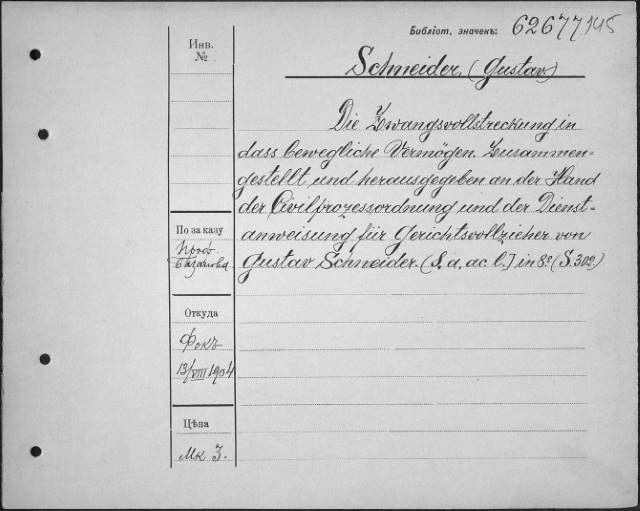 Библіот. значекъ: 62677 145
Инв.
№
Schneider. (Gustav)
Die Zwangsvollstreckung in
dass bewegliche Vermögen. Zusammen-
gestellt und herausgegeben an der Hand
der Civilprozessordnung und der Dienst-
anweisung für Gerichtsvollzieher von
Gustav Schneider. (S. a. ac. l.] in 8º (S. 302.)
По заказу
Проф.
Откуда
Фокъ
13/VIII 1904
Цѣна
Мк 3.